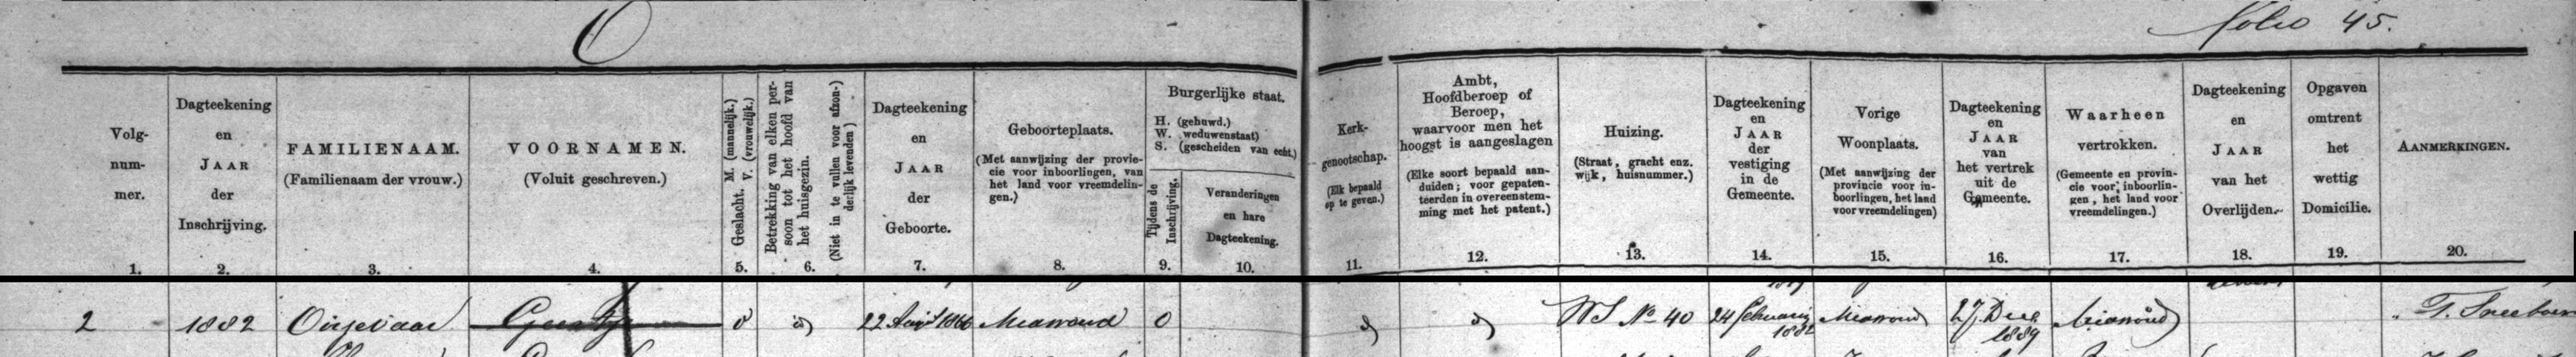 O
folio 45.
Volg-
num-
mer.
1.
Dagteekening
en
JAAR
der
Inschrijving.
2.
FAMILIENAAM.
(Familienaam der vrouw.)
3.
VOORNAMEN.
(Voluit geschreven.)
4.
Geslacht. M. (mannelijk.)
V. (vrouwelijk.)
5.
Betrekking van elken per-
soon tot het hoofd van
het huisgezin.
(Niet in te vullen voor afzon-
derlijk levenden)
6.
Dagteekening
en
JAAR
der
Geboorte.
7.
Geboorteplaats.
(Met aanwijzing der provin-
cie voor inboorlingen, van
het land voor vreemdelin-
gen.)
8.
Burgerlijke staat.
H. (gehuwd.)
W. weduwenstaat)
S. (gescheiden van echt.)
Tijdens de
Inschrijving.
9.
Veranderingen
en hare
Dagteekening.
10.
Kerk-
genootschap.
(Elk bepaald
op te geven.)
11.
Ambt,
Hoofdberoep of
Beroep,
waarvoor men het
hoogst is aangeslagen
(Elke soort bepaald aan-
duiden; voor gepaten-
teerden in overeenstem-
ming met het patent.)
12.
Huizing.
(Straat, gracht enz.
wijk, huisnummer.)
13.
Dagteekening
en
JAAR
der
vestiging
in de
Gemeente.
14.
Vorige
Woonplaats.
(Met aanwijzing der
provincie voor in-
boorlingen, het land
voor vreemdelingen)
15.
Dagteekening
en
JAAR
van
het vertrek
uit de
Gemeente.
16.
Waarheen
vertrokken.
(Gemeente en provin-
cie voor inboorlin-
gen, het land voor
vreemdelingen.)
17.
Dagteekening
en
JAAR
van het
Overlijden.
18.
Opgaven
omtrent
het
wettig
Domicilie.
19.
AANMERKINGEN.
20.
2 1882 Geertje 22 1866 O No 40 24 Februarij 1882 27 Dec 1889